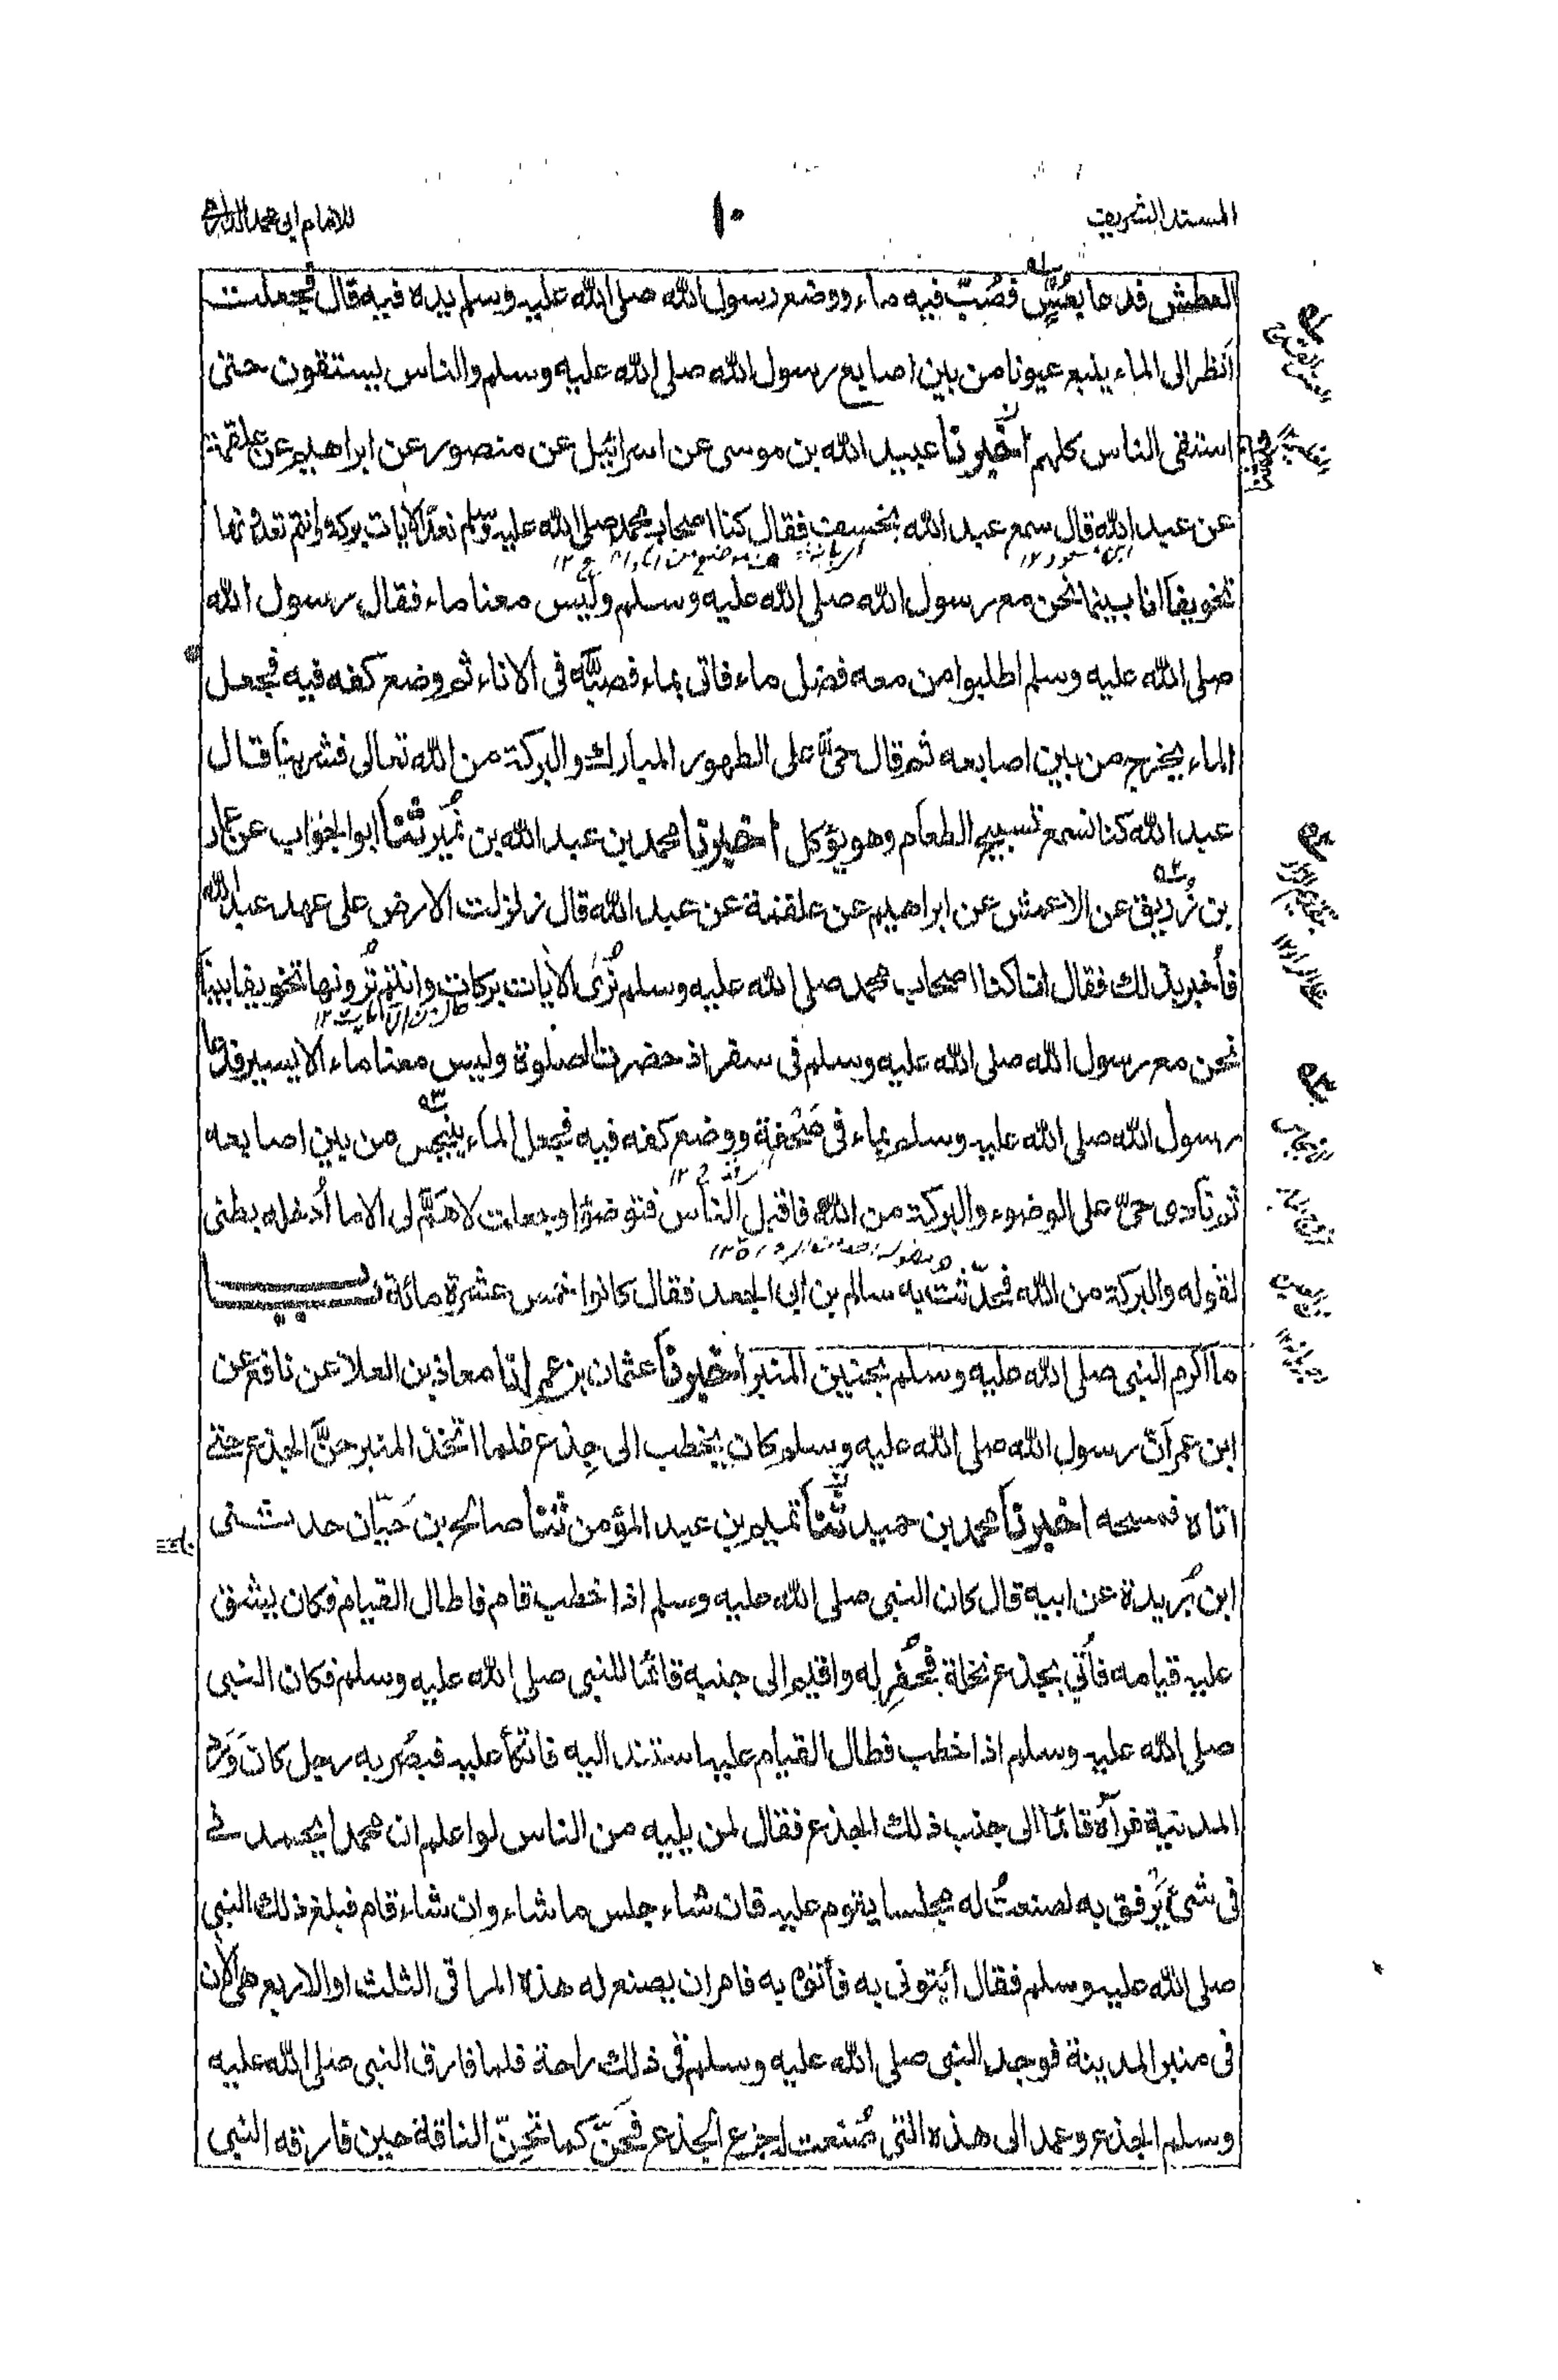 المسند الشريف
١٠
للامام ابي محمد الدارمي
العطش فدعا بعُسٍّ فصُبّ فيه ماء ووضع رسول الله صلى الله عليه وسلم يده فيه قال فجعلت
انظر الى الماء ينبع عيونا من بين اصابع رسول الله صلى الله عليه وسلم والناس يستقون حتى
استقى الناس كلهم اخبرنا عبيد الله بن موسى عن اسرائيل عن منصور عن ابراهيم عن علقمة
عن عبد الله قال سمع عبد الله بخسف فقال كنا اصحاب محمد صلى الله عليه وسلم نعد الايات بركة وانتم تعدونها
تخويفا انا بينما نحن مع رسول الله صلى الله عليه وسلم وليس معنا ماء فقال رسول الله
صلى الله عليه وسلم اطلبوا من معه فضل ماء فاتى بماء فصبّه فى الاناء ثم وضع كفه فيه فجعل
الماء يخرج من بين اصابعه ثم قال حىّ على الطهور المبارك والبركة من الله تعالى فشربنا قال
عبد الله كنا نسمع تسبيح الطعام وهو يؤكل اخبرنا محمد بن عبد الله بن نُمير ثنا ابو الجواب عن عمار
بن رُزيق عن الاعمش عن ابراهيم عن علقمة عن عبد الله قال زلزلت الارض على عهد عبد الله
فأُخبر بذلك فقال انا كنا اصحاب محمد صلى الله عليه وسلم نُرى الأيات بركات وانتم تُرونها تخويفا بينا
نحن مع رسول الله صلى الله عليه وسلم فى سفر اذ حضرت الصلوة وليس معنا ماء الا يسير فدعا
رسول الله صلى الله عليه وسلم بماء فى صَحْفة ووضع كفه فيه فجعل الماء ينبجس من بين اصابعه
ثم نادى حىّ على الوضوء والبركة من الله فاقبل الناس فتوضؤا وجعلت لا هَمَّ لى الا ما أُدخله بطنى
لقوله والبركة من الله فحدّثت به سالم بن ابى الجعد فقال كانوا خمس عشرة مائة باب
ما اكرم النبى صلى الله عليه وسلم بحنين المنبر اخبرنا عثمان بن عمر انا معاذ بن العلا عن نافع عن
ابن عمر انّ رسول الله صلى الله عليه وسلم كان يخطب الى جِذع فلما اتّخذ المنبر حنّ الجذع حتى
اتاه فمسحه اخبرنا محمد بن حميد ثنا تميم بن عبد المؤمن ثنا صالح بن حَيّان حدثنى
ابن بُريدة عن ابيه قال كان النبى صلى الله عليه وسلم اذا خطب قام فاطال القيام فكان يشق
عليه قيامه فأُتي بجذع نخلة فحُفِر له واقيم الى جنبه قائما للنبى صلى الله عليه وسلم فكان النبى
صلى الله عليه وسلم اذا خطب فطال القيام عليه استند اليه فاتكأ عليه فبصُر به رجل كان وَرَد
المدينة فرآه قائما الى جنب ذلك الجذع فقال لمن يليه من الناس لو اعلم ان محمدا يحمدنى
فى شئ يَرْفق به لصنعتُ له مجلسا يقوم عليه فان شاء جلس ما شاء وان شاء قام فبلغ ذلك النبى
صلى الله عليه وسلم فقال أيتونى به فأتوه به فامر ان يصنع له هذه المراقى الثلث او الاربع هى الأن
فى منبر المدينة فوجد النبى صلى الله عليه وسلم فى ذلك راحة فلما فارق النبى صلى الله عليه
وسلم الجذع وعمد الى هذه التى صُنعت له جزع الجذع فحَنّ كما تحِنّ الناقة حين فارقه النبى